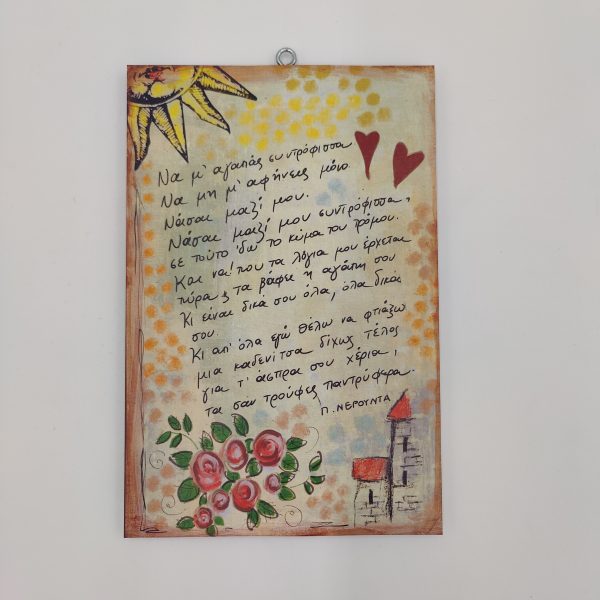 Να μ' αγαπάς συντρόφισσα
Να μη μ' αφήνεις μόνο
Νάσαι μαζί μου.
Νάσαι μαζί μου συντρόφισσα,
σε τούτο 'δω το κύμα του τρόμου.
Και να! που τα λόγια μου έρχεται
τώρα ς τα βάφει η αγάπη σου
Κι είναι δικά σου όλα, όλα δικά
σου.
Κι απ' όλα εγώ θέλω να φτιάξω
μια καδενίτσα δίχως τέλος
για τ' άσπρα σου χέρια,
τα σαν τρούφες παντρύφερα.
Π. ΝΕΡΟΥΝΤΑ